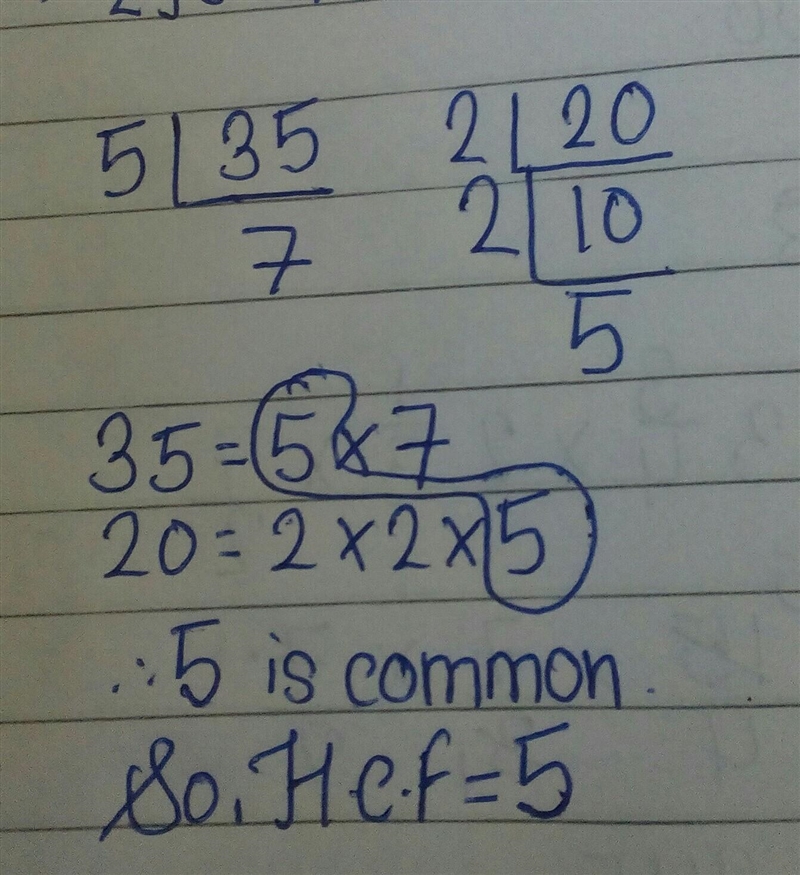 5 | 35 2 | 20
7 2 | 10
5
35 = 5 × 7
20 = 2 × 2 × 5
∴ 5 is common.
So, H C.f = 5